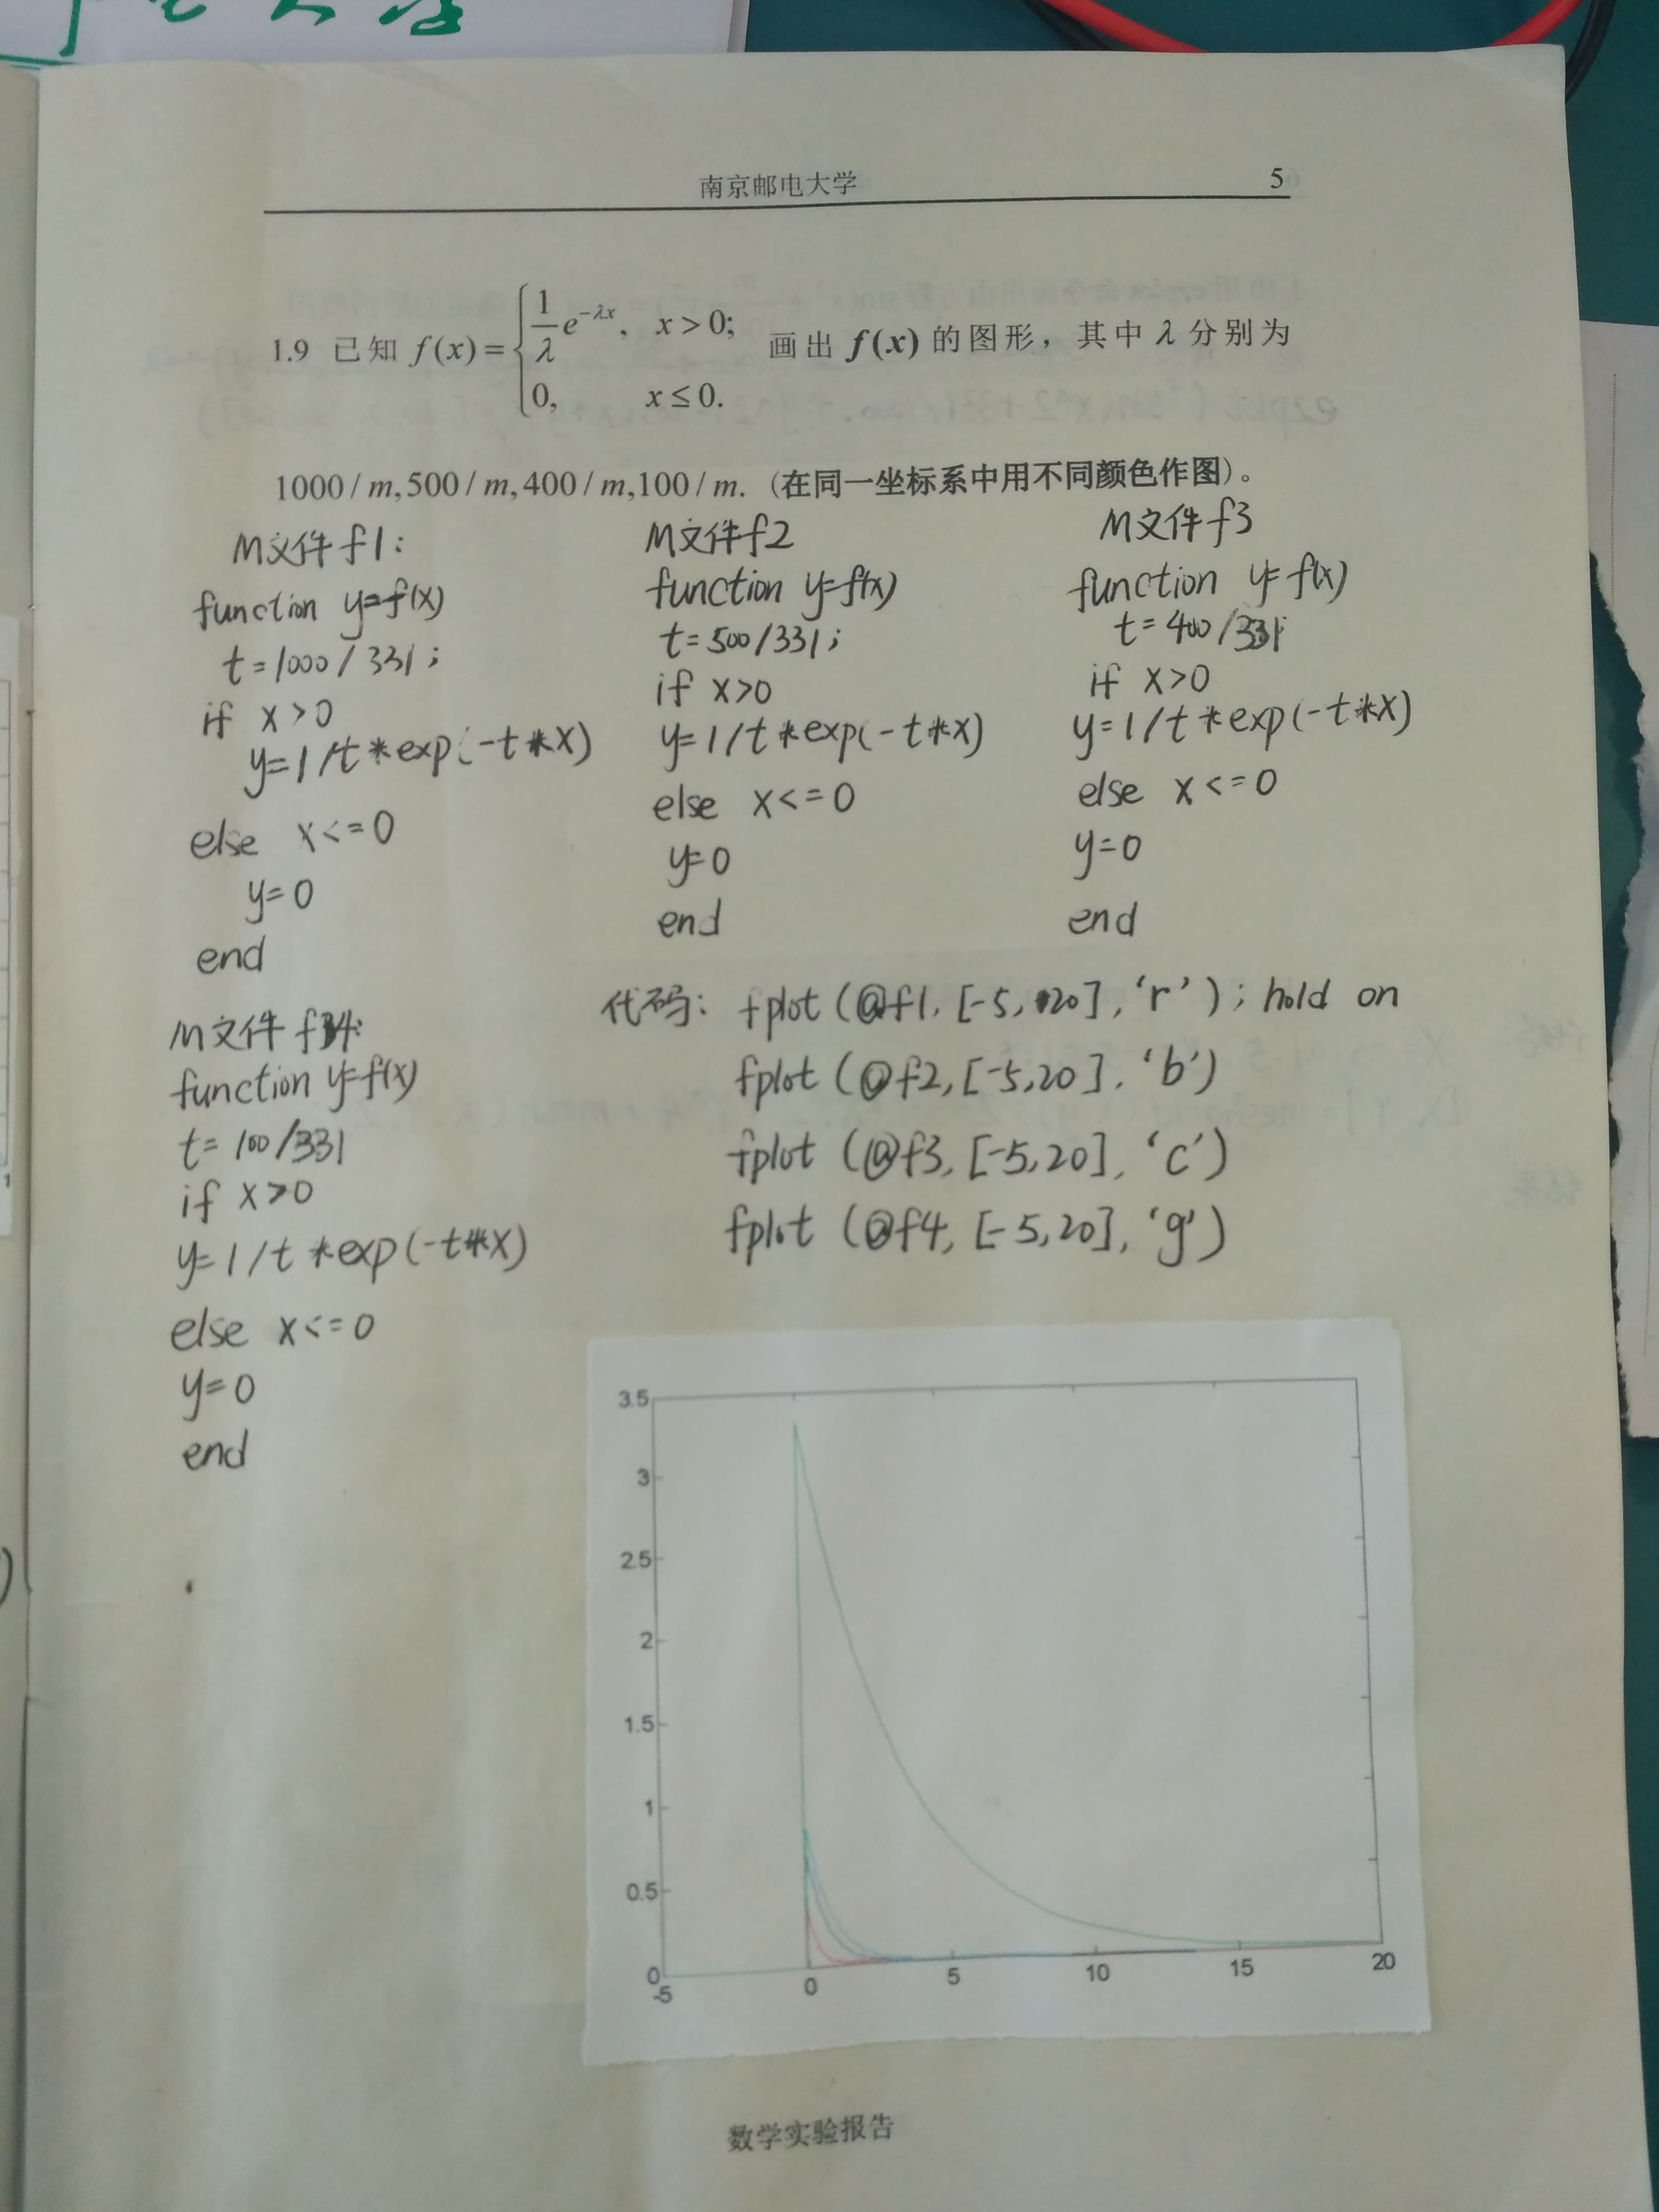 南京邮电大学 5
1.9 已知 f(x)= { 1/λ e^{-λx}, x>0; 0, x≤0. 画出 f(x) 的图形，其中 λ 分别为
1000/m,500/m,400/m,100/m. (在同一坐标系中用不同颜色作图)。
M文件f1:
function y=f(x)
t=1000/331;
if x>0
y=1/t*exp(-t*x)
else x<=0
y=0
end
M文件f2
function y=f(x)
t=500/331;
if x>0
y=1/t*exp(-t*x)
else x<=0
y=0
end
M文件f3
function y=f(x)
t=400/331
if x>0
y=1/t*exp(-t*x)
else x<=0
y=0
end
M文件f4:
function y=f(x)
t=100/331
if x>0
y=1/t*exp(-t*x)
else x<=0
y=0
end
代码: fplot(@f1,[-5,20],'r');hold on
fplot(@f2,[-5,20],'b')
fplot(@f3,[-5,20],'c')
fplot(@f4,[-5,20],'g')
3.5
3
2.5
2
1.5
1
0.5
0
-5 0 5 10 15 20
数学实验报告